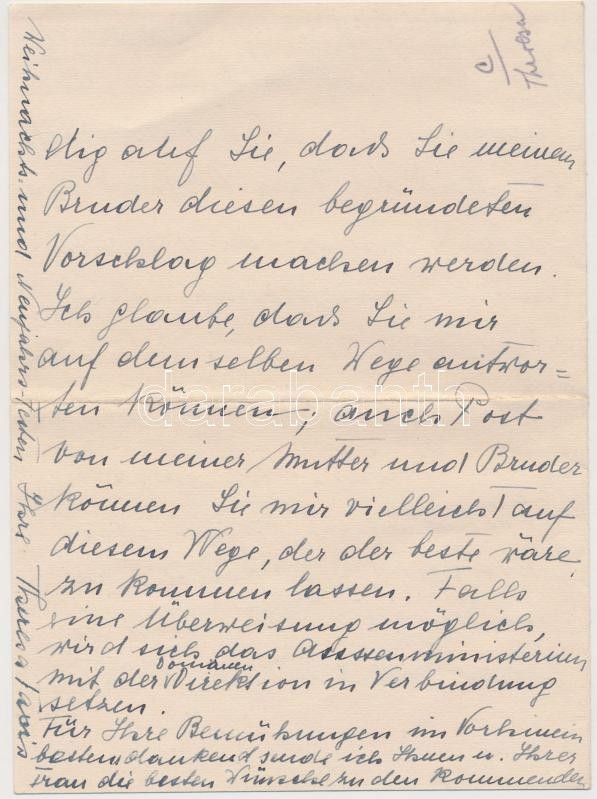 C/
Theresa
dig auf Sie, dass Sie meinem
Bruder diesen begründeten
Vorschlag machen werden.
Ich glaube, dass Sie mir
auf demselben Wege antwor=
ten können; auch Post
von meiner Mutter und Bruder
können Sie mir vielleicht auf
diesem Wege, der der beste wäre,
zu kommen lassen. Falls
eine Überweisung möglich,
wird sich das Aussenministerium
mit der Domänen Direktion in Verbindung
setzen.
Für Ihre Bemühungen im Vorhinein
bestens dankend sende ich Ihnen u. Ihrer
Frau die besten Wünsche zu den kommenden
Weihnachts- und Neujahrs-Festen Ihre Theresa
darabanth